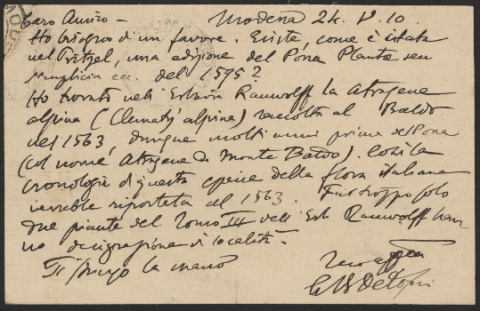 Caro Amico –
Modena 24. V. 10.
Ho bisogno di un favore. Esiste, come è citata
nel Pritzel, una edizione del Pona Plantae seu
simplicia ecc. del 1595?
Ho trovato nell'Erbario Rauwolff la Atragene
alpina (Clematis alpina) raccolta al Baldo
nel 1563, dunque molti anni prima del Pona
(col nome Atragene di Monte Baldo). Così la
cronologia di questa specie della flora italiana
verrebbe riportata al 1563. Purtroppo solo
due piante del Tomo III dell'Erb. Rauwolff han-
no designazione di località.
Ti stringo la mano
GB De Toni